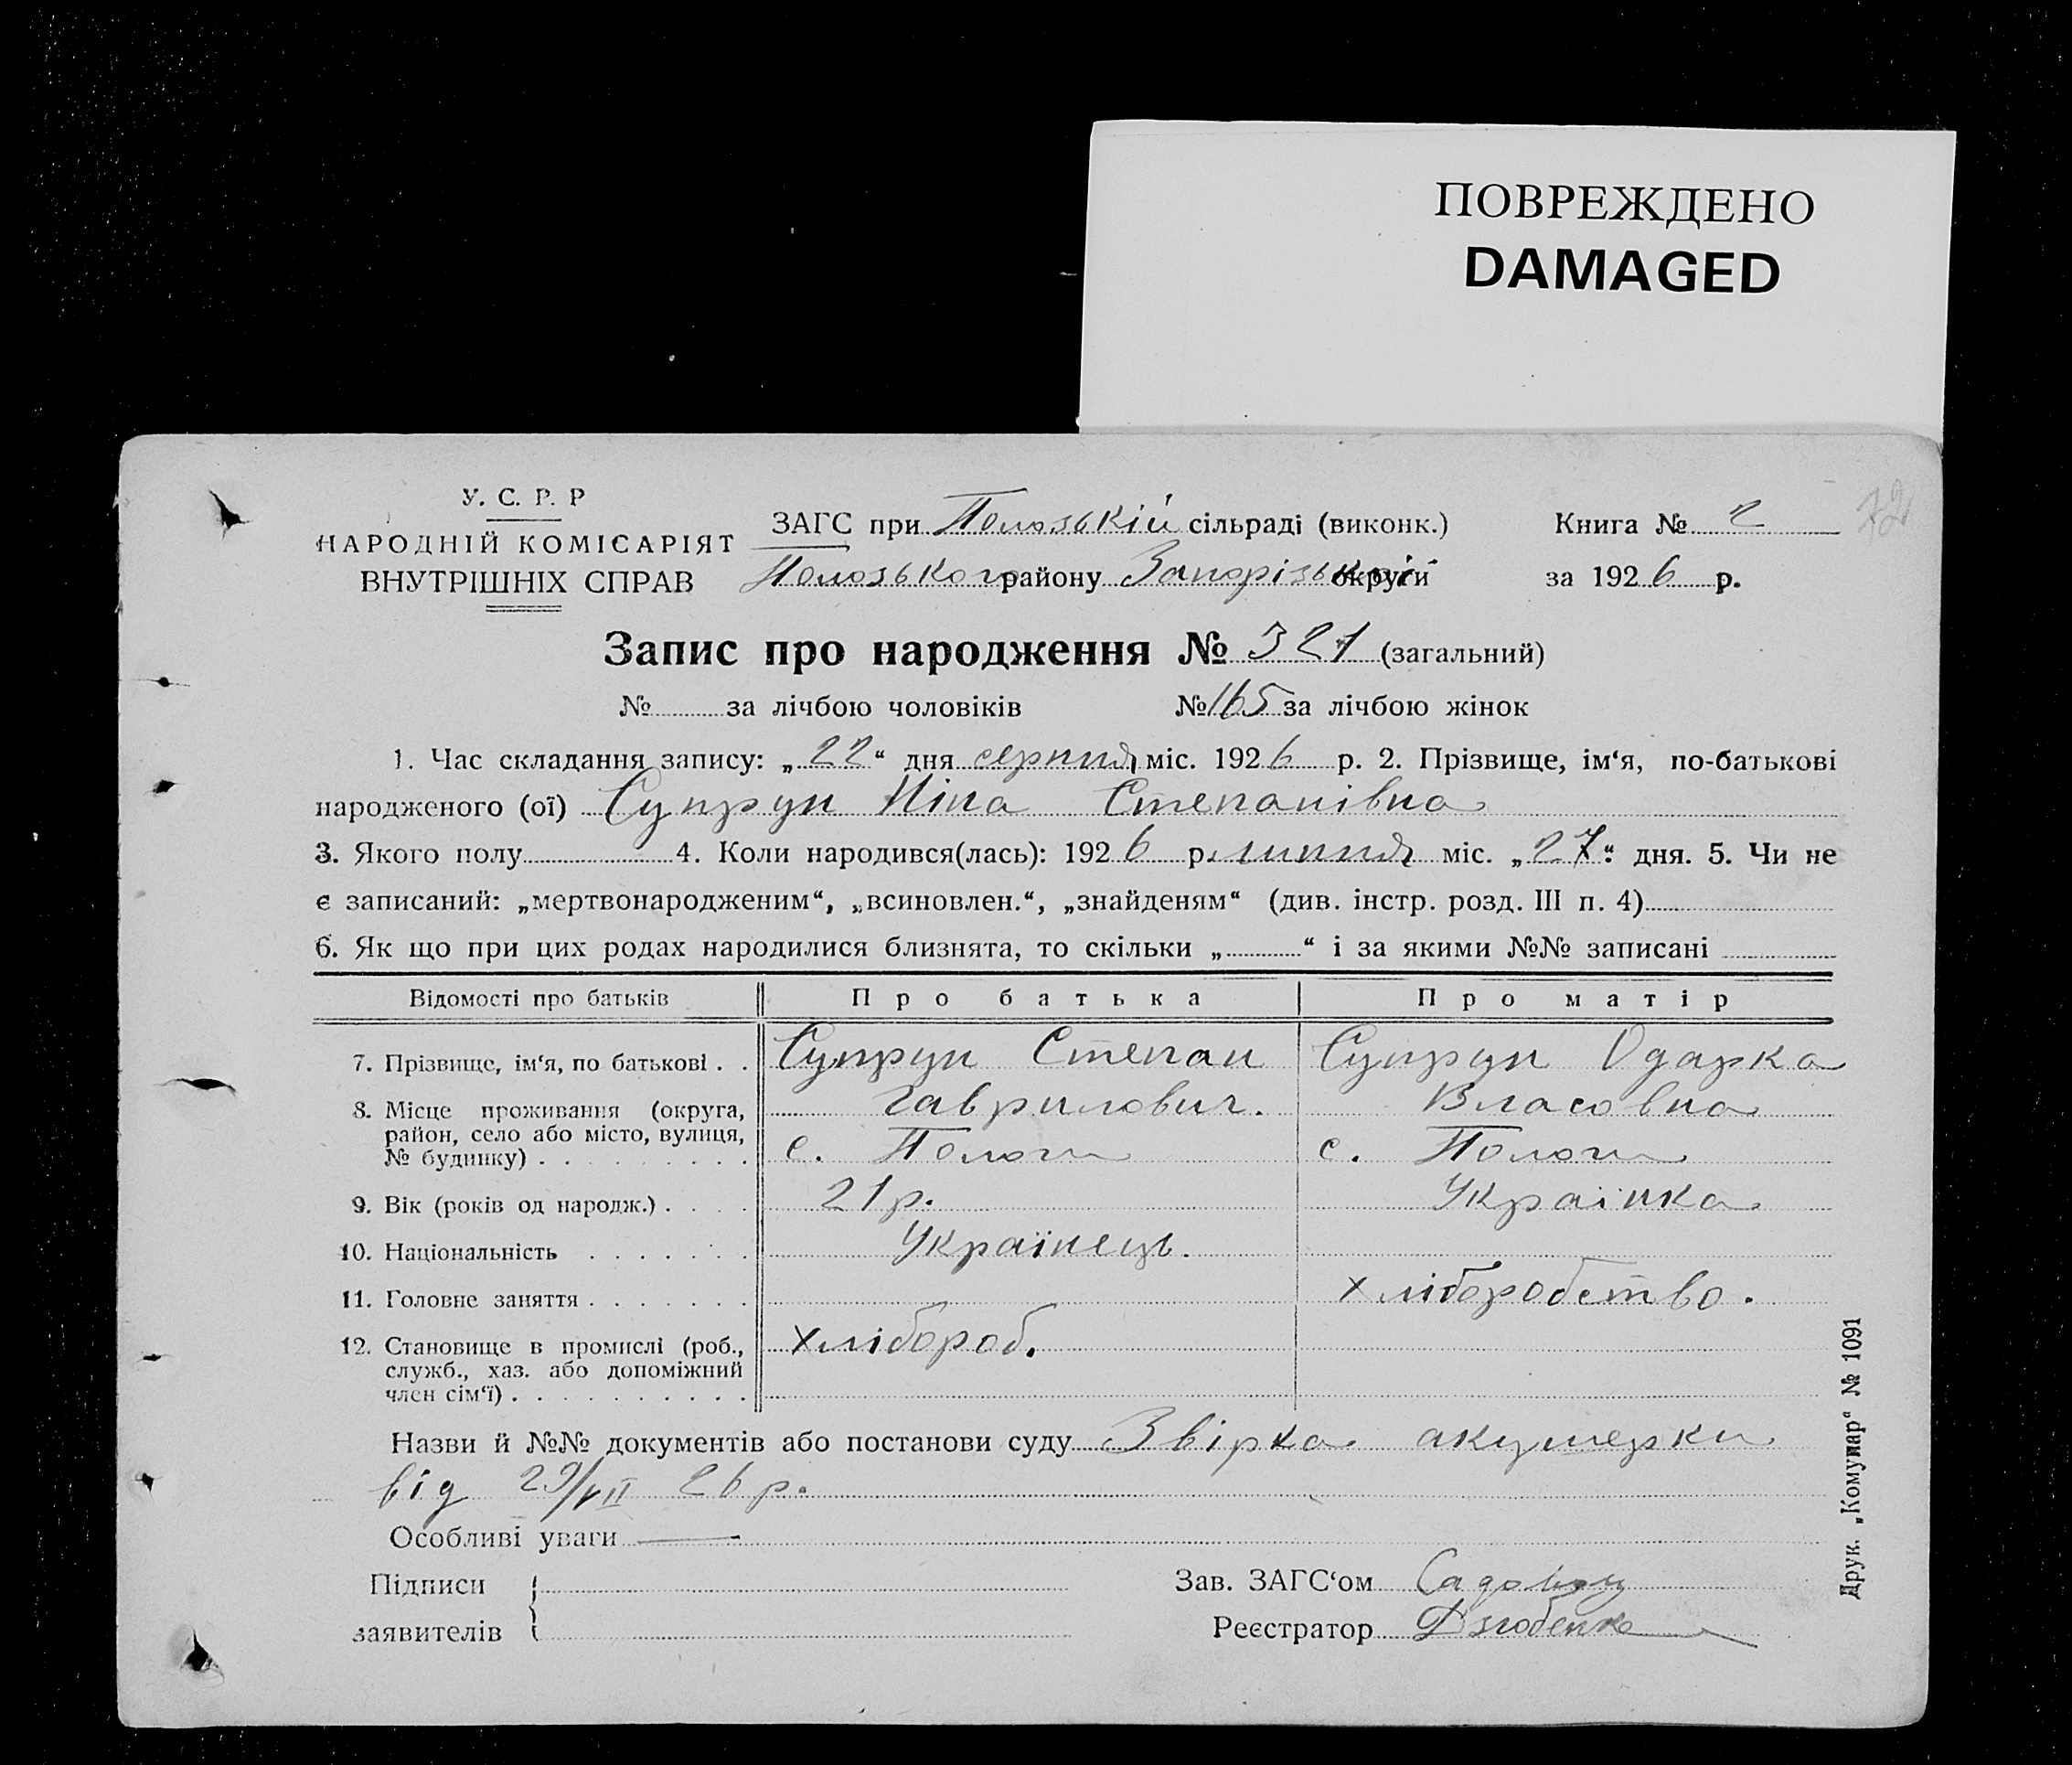 ПОВРЕЖДЕНО
DAMAGED
72
У. С. Р. Р
НАРОДНІЙ КОМІСАРІЯТ
ВНУТРІШНІХ СПРАВ
ЗАГС при Полозькій сільраді (виконк.)
Полозького району Запорізької округи
Книга № 2
за 1926 р.
Запис про народження № 321 (загальний)
№ за лічбою чоловіків №165 за лічбою жінок
1. Час складання запису: „22“ дня серпня міс. 1926 р. 2. Прізвище, ім‘я, по-батькові
народженого (ої) Супрун Ніна Степанівна
3. Якого полу 4. Коли народився(лась): 1926 р. липня міс. „27“ дня. 5. Чи не
є записаний: „мертвонародженим“, „всиновлен.“, „знайденям“ (див. інстр. розд. III п. 4)
6. Як що при цих родах народилися близнята, то скільки „ “ і за якими №№ записані
Відомості про батьків Про батька Про матір
7. Прізвище, ім‘я, по батькові . . Супрун Степан Супрун Одарка
Гаврилович. Власовна
8. Місце проживання (округа,
район, село або місто, вулиця,
№ будинку) . с. Пологи с. Пологи
9. Вік (років од народж.) . 21 р. Українка
10. Національність Українець.
11. Головне заняття . хліборобство.
12. Становище в промислі (роб., хлібороб.
служб., хаз. або допоміжний
член сім‘ї) .
Назви й №№ документів або постанови суду Звірка акушерки
від 29/VII 26 р.
Особливі уваги —
Підписи
заявителів
Зав. ЗАГС‘ом
Реєстратор
Друк. „Комунар“ № 1091